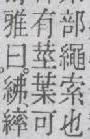 部繩索也
有莖葉可
雅曰。紼繂